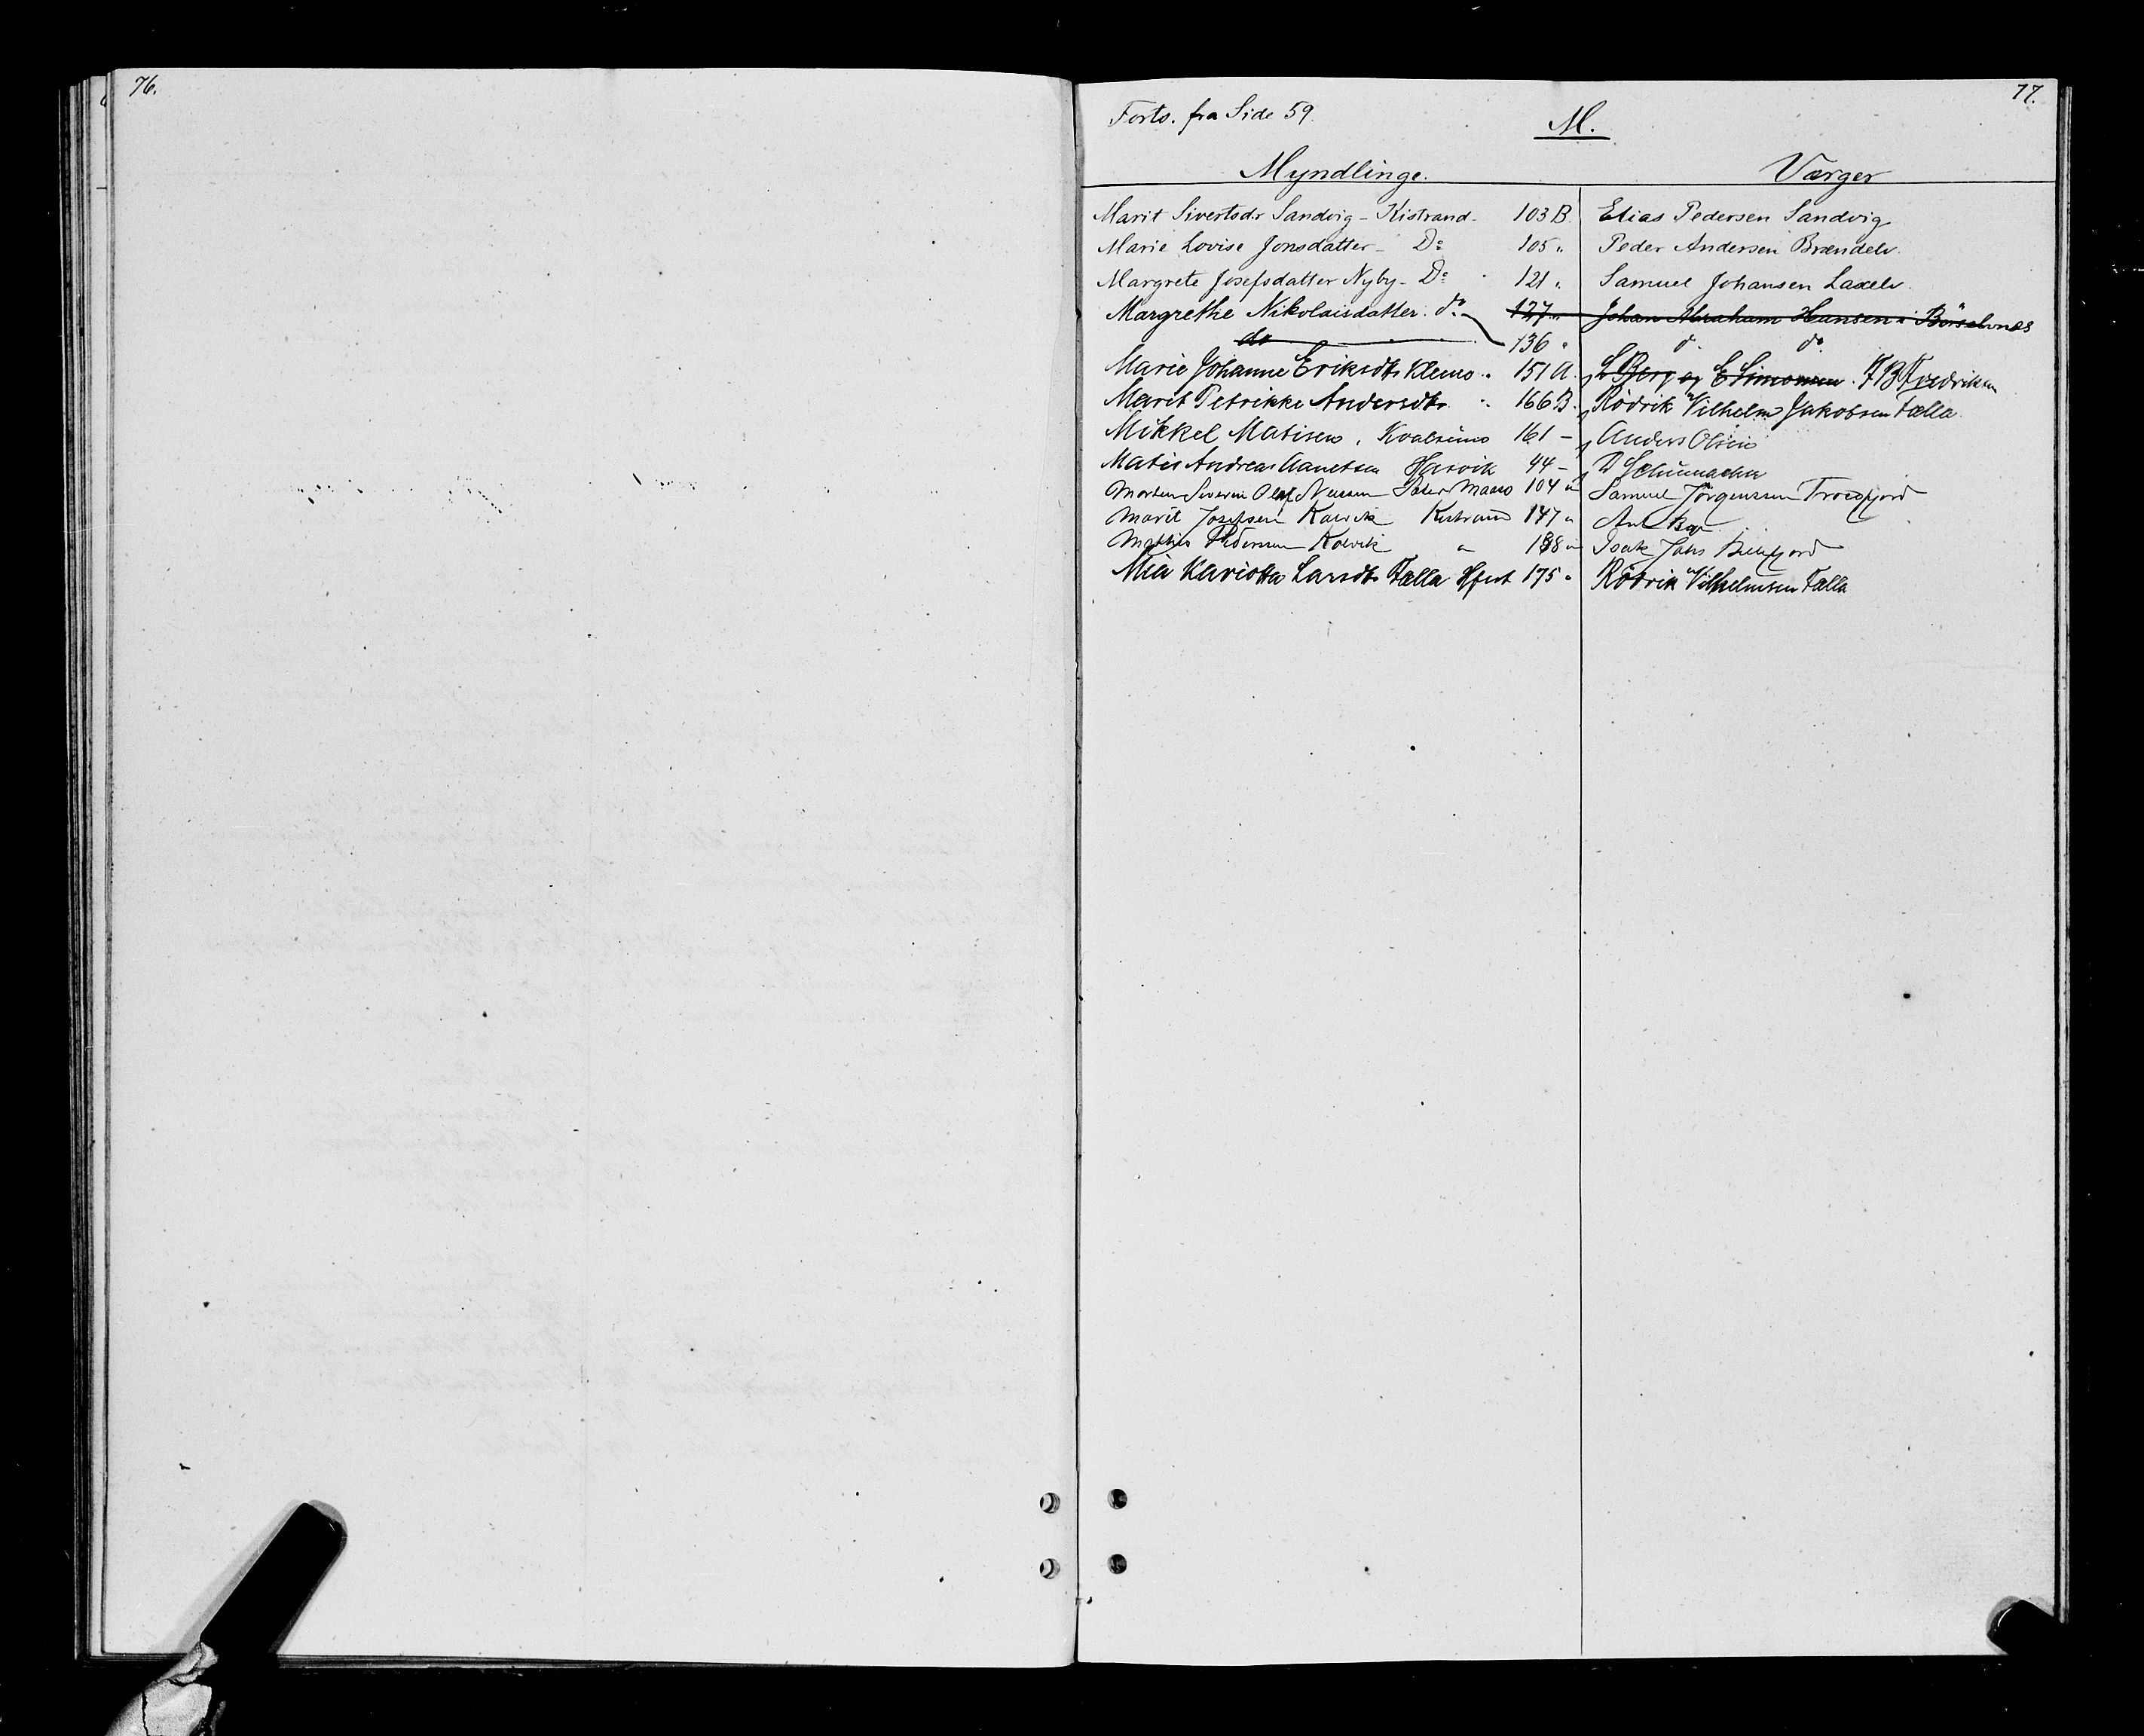 76.
77.
Forts. fra Side 59.
M.
Myndlinge. Værger
Marit Sivertsdr Sandvig - Kistrand. 103 B. Elias Pedersen Sandvig
Marie Lovise Jonsdatter - Do 105 " Peder Andersen Brændelv.
Margrete Josefsdatter Nyby - Do 121 " Samuel Johansen Laxelv.
Margrethe Nikolaisdatter. do 127 " Johan Abraham Hansen i Börselvnæs
do 136 " do do
Marie Johanne Eriksdtr Klemo " 151 A. L Berg og E Simonsen. Fredriksen
Marit Petrikke Andersdtr. " 166 B. Rödrik Vilhelm Jakobsen Fælla.
Mikkel Matisen, Kvalsund 161 - Anders Olsen
Matis Andreas Hasvik 44 - Schumacher
Morten Severin Olaf Maasø 104 " Samuel Jørgensen
Marit Josefsen Kolvik Kistrand 147 "
Mathis Pedersen Kolvik " 188 " Isak Billefjord
Mia Larsdtr Fælla Hfest 175 " Rödrik Vilhelmsen Fælla